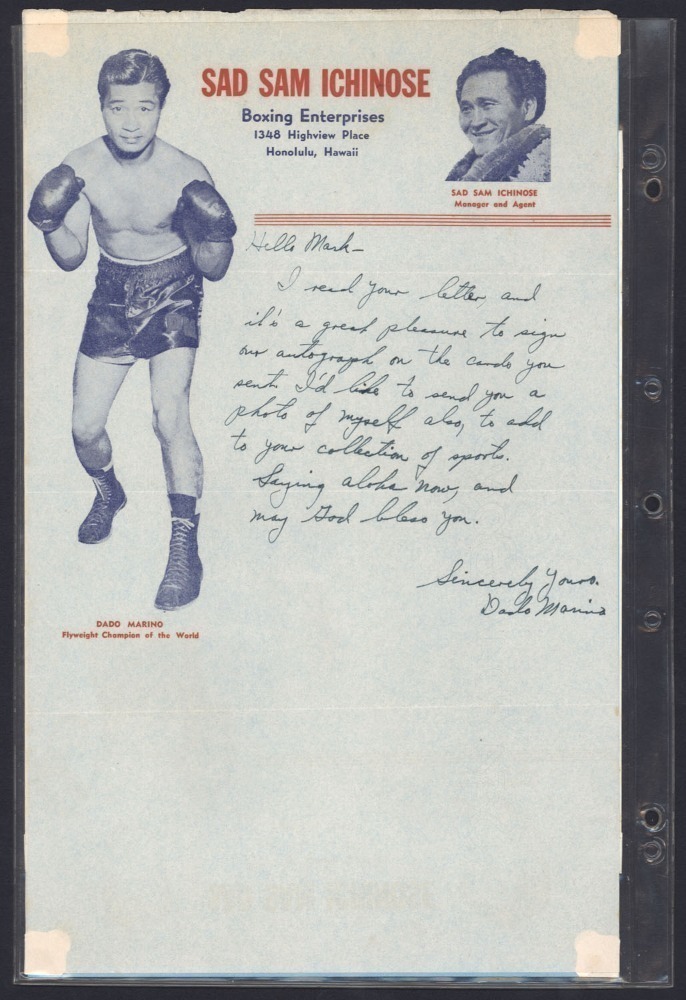 SAD SAM ICHINOSE
Boxing Enterprises
1348 Highview Place
Honolulu, Hawaii
SAD SAM ICHINOSE
Manager and Agent
Hello Mark-
I read your letter, and
it's a great pleasure to sign
our autograph on the cards you
sent. I'd like to send you a
photo of myself also, to add
to your collection of sports.
Saying aloha now, and
may God bless you.
Sincerely Yours.
Dado Marino
DADO MARINO
Flyweight Champion of the World